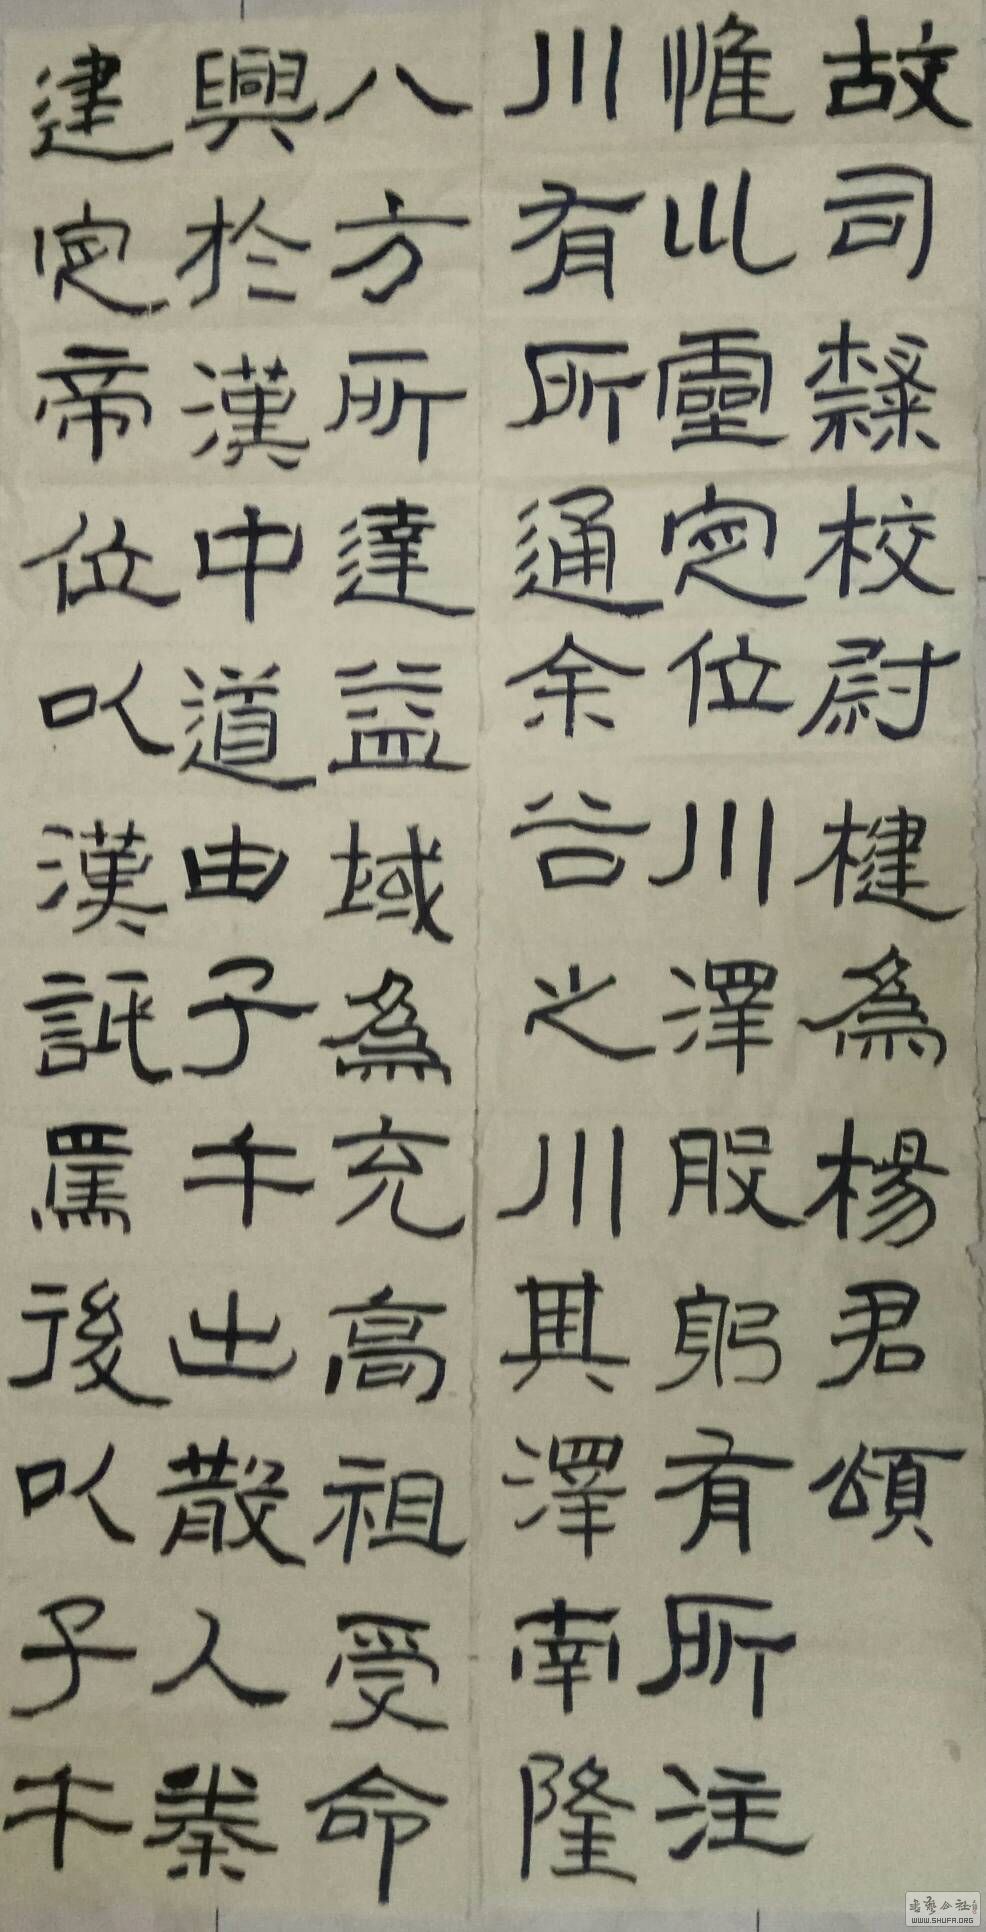 故司隸校尉楗為楊君頌
惟巛靈定位川澤股躬有所注
川有所通余谷之川其澤南隆
八方所達益域為充高祖受命
興於漢中道由子午出散入秦
建定帝位以漢詆焉後以子午
书艺公社
WWW.SHUFA.ORG